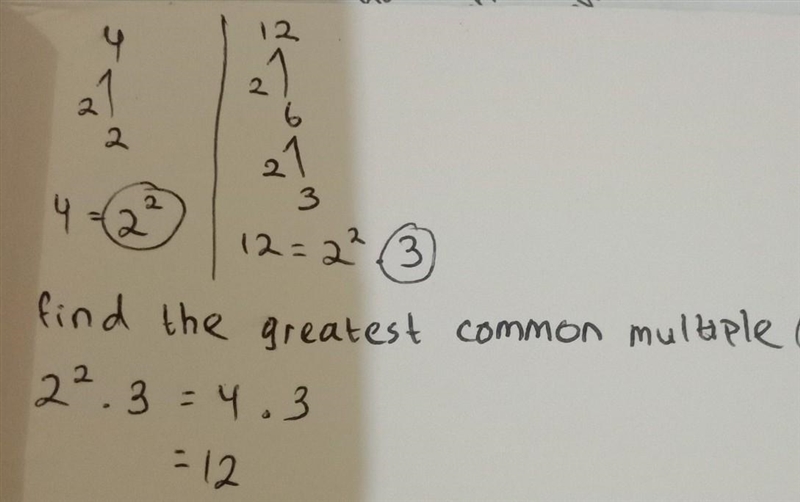 4
2
2
4 = 2²
12
2
6
2
3
12 = 2² . 3
find the greatest common multiple (
2² . 3 = 4 . 3
= 12